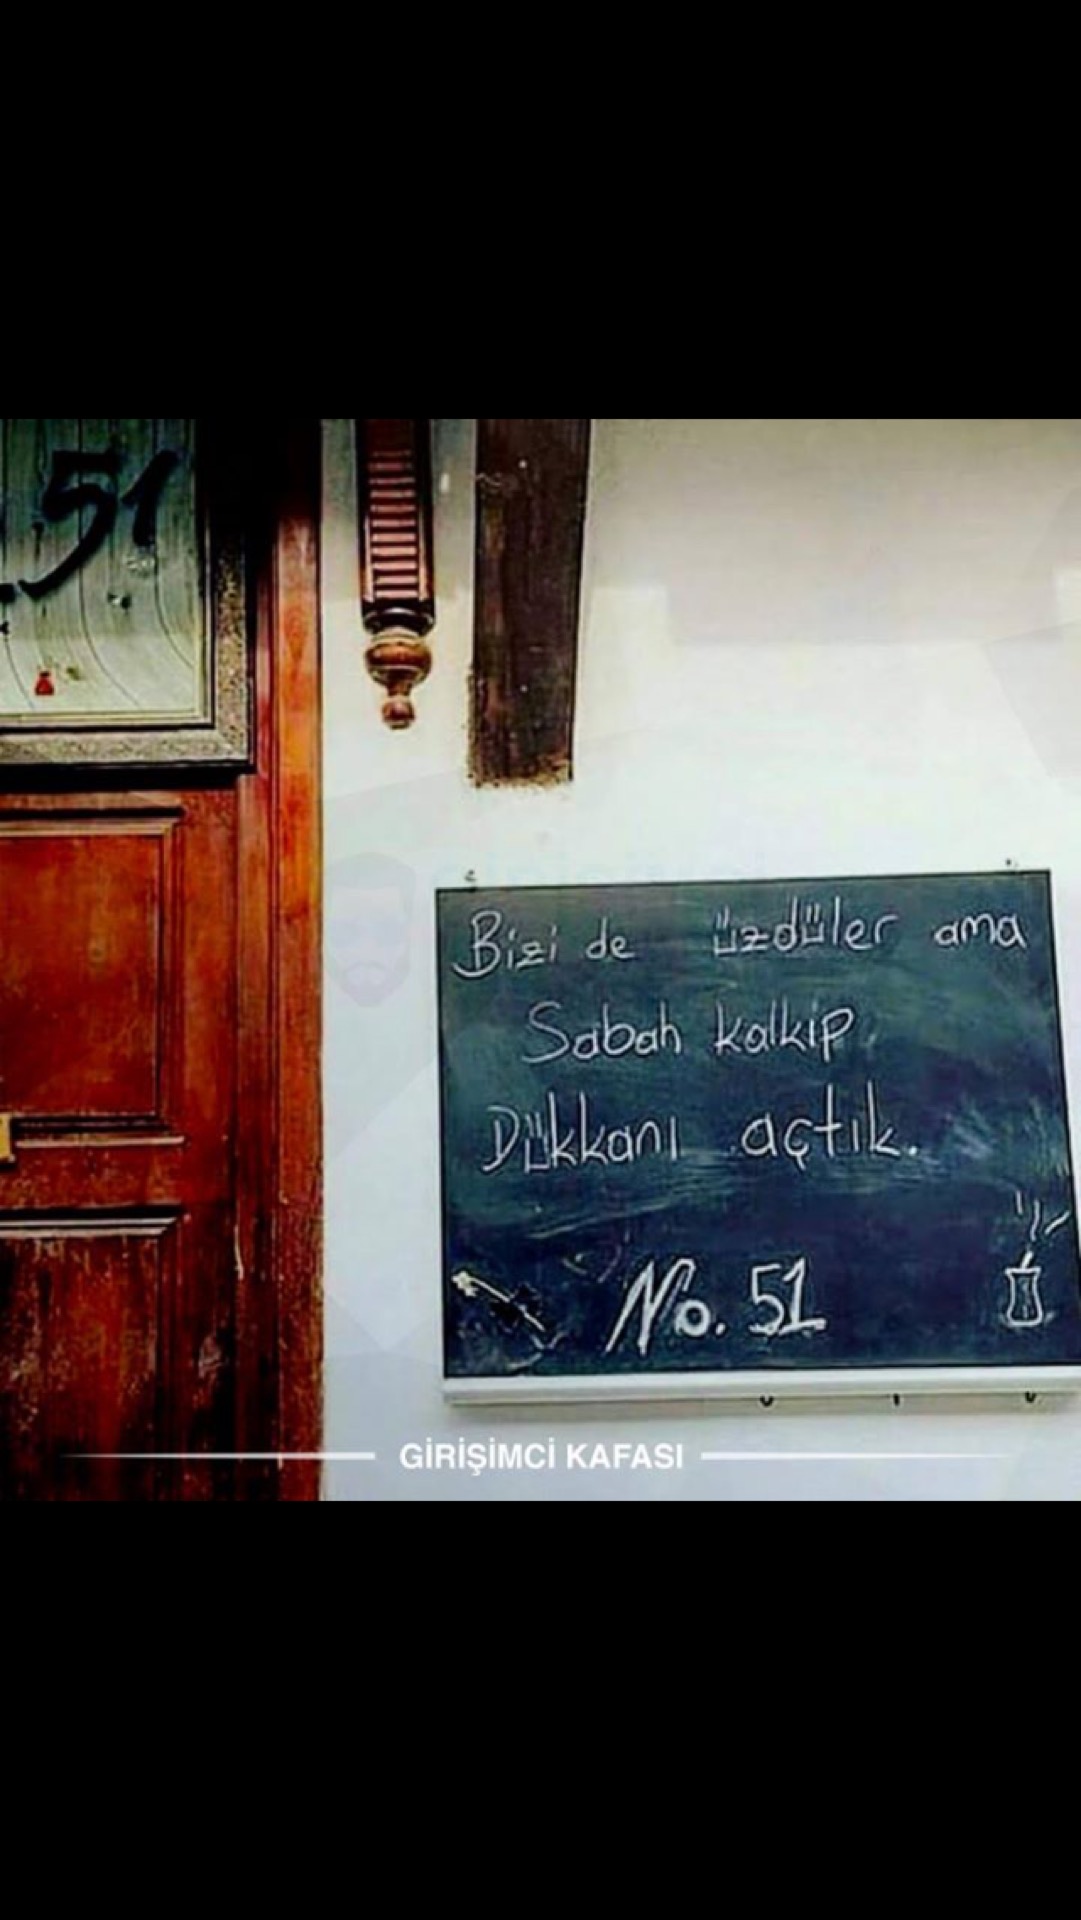 .51
Bizi de üzdüler ama
Sabah kalkip
Dükkanı açtık.
No. 51
GİRİŞİMCİ KAFASI